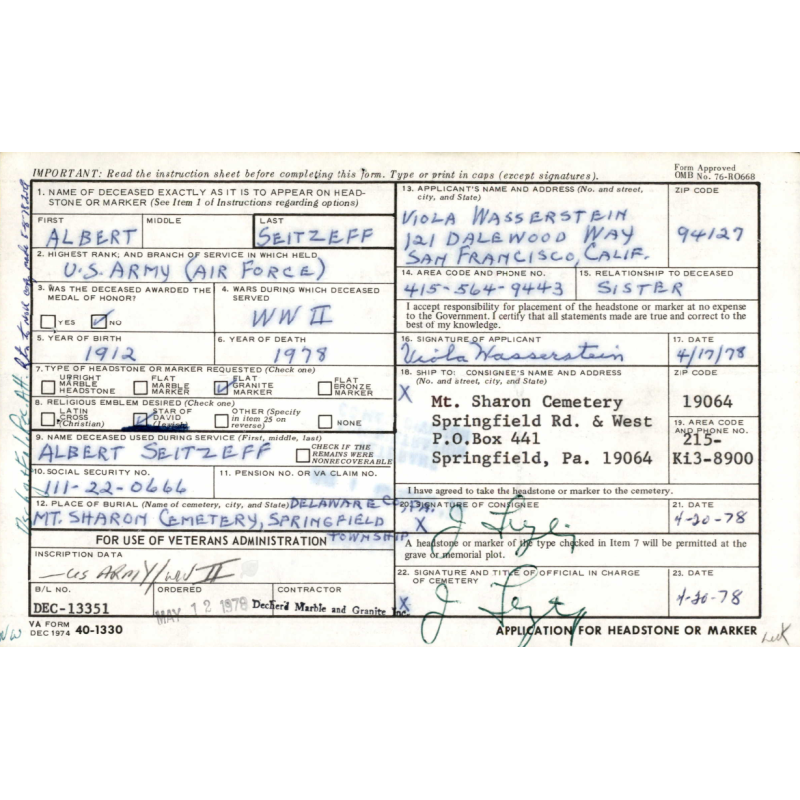 IMPORTANT: Read the instruction sheet before completing this form. Type or print in caps (except signatures).
Form Approved
OMB No. 76-RO668
1. NAME OF DECEASED EXACTLY AS IT IS TO APPEAR ON HEAD-
STONE OR MARKER (See Item 1 of Instructions regarding options)
FIRST MIDDLE LAST
ALBERT SEITZEFF
2. HIGHEST RANK; AND BRANCH OF SERVICE IN WHICH HELD
U.S. ARMY (AIR FORCE)
3. WAS THE DECEASED AWARDED THE
MEDAL OF HONOR?
YES NO
4. WARS DURING WHICH DECEASED
SERVED
WW II
5. YEAR OF BIRTH
1912
6. YEAR OF DEATH
1978
7. TYPE OF HEADSTONE OR MARKER REQUESTED (Check one)
UPRIGHT MARBLE HEADSTONE
FLAT MARBLE MARKER
FLAT GRANITE MARKER
FLAT BRONZE MARKER
8. RELIGIOUS EMBLEM DESIRED (Check one)
LATIN CROSS (Christian)
STAR OF DAVID
OTHER (Specify in item 25 on reverse)
NONE
9. NAME DECEASED USED DURING SERVICE (First, middle, last)
ALBERT SEITZEFF
CHECK IF THE REMAINS WERE NONRECOVERABLE
10. SOCIAL SECURITY NO.
111-22-0666
11. PENSION NO. OR VA CLAIM NO.
12. PLACE OF BURIAL (Name of cemetery, city, and State)
DELAWARE CO., PA.
MT. SHARON CEMETERY, SPRINGFIELD
TOWNSHIP
FOR USE OF VETERANS ADMINISTRATION
INSCRIPTION DATA
US ARMY/WW II
B/L NO.
DEC-13351
ORDERED
MAY 12 1978
CONTRACTOR
Decherd Marble and Granite Inc.
VA FORM
DEC 1974 40-1330
13. APPLICANT'S NAME AND ADDRESS (No. and street,
city, and State)
VIOLA WASSERSTEIN
121 DALEWOOD WAY
SAN FRANCISCO, CALIF.
ZIP CODE
94127
14. AREA CODE AND PHONE NO.
415-564-9443
15. RELATIONSHIP TO DECEASED
SISTER
I accept responsibility for placement of the headstone or marker at no expense
to the Government. I certify that all statements made are true and correct to the
best of my knowledge.
16. SIGNATURE OF APPLICANT
Viola Wasserstein
17. DATE
4/17/78
18. SHIP TO: CONSIGNEE'S NAME AND ADDRESS
(No. and street, city, and State)
ZIP CODE
X
Mt. Sharon Cemetery
Springfield Rd. & West
P.O.Box 441
Springfield, Pa. 19064
19064
19. AREA CODE
AND PHONE NO.
215-
Ki3-8900
I have agreed to take the headstone or marker to the cemetery.
20. SIGNATURE OF CONSIGNEE
X
21. DATE
4-20-78
A headstone or marker of the type checked in Item 7 will be permitted at the
grave or memorial plot.
22. SIGNATURE AND TITLE OF OFFICIAL IN CHARGE
OF CEMETERY
X
23. DATE
4-20-78
APPLICATION FOR HEADSTONE OR MARKER